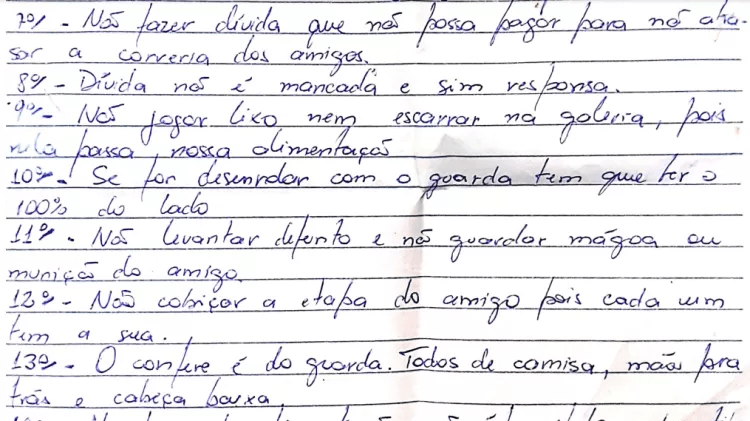 7º - Não fazer dívida que não possa pagar para não atra-
sar a correria dos amigos.
8º - Dívida não é mancada e sim responsa.
9º - Não jogar lixo nem escarrar na galeria, pois
nela passa nossa alimentação
10º - Se for desenrolar com o guarda tem que ter o
100% do lado
11º - Não levantar defunto e não guardar mágoa ou
munição do amigo.
12º - Não cobiçar a etapa do amigo pois cada um
tem a sua.
13º - O confere é do guarda. Todos de camisa, mãos pra
trás e cabeça baixa.